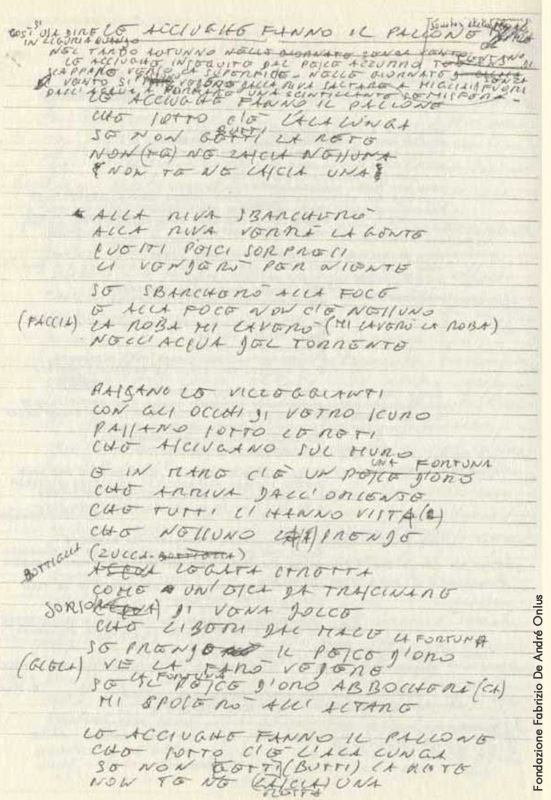 COSÌ SI USA DIRE LE ACCIUGHE FANNO IL PALLONE
IN LIGURIA QUANDO
NEL TARDO AUTUNNO NELLE GIORNATE SENZA VENTO
LE ACCIUGHE INSEGUITE DAL PESCE AZZURRO
SCAPPANO VERSO LA SUPERFICIE. NELLE GIORNATE DI
VENTO SI DALLA RIVA SALTARE A MIGLIAIA FUORI
DALL'ACQUA A FORMARE UNA SCINTILLANTE SEMISFERA.
LE ACCIUGHE FANNO IL PALLONE
CHE SOTTO C'È L'ALALUNGA
BUTTI
SE NON GETTI LA RETE
NON (TE) NE LASCIA NESSUNA
NON TE NE LASCIA UNA
ALLA RIVA SBARCHERÒ
ALLA RIVA VERRÀ LA GENTE
QUESTI PESCI SORPRESI
LI VENDERÒ PER NIENTE
SE SBARCHERÒ ALLA FOCE
E ALLA FOCE NON C'È NESSUNO
(FACCIA) LA ROBA MI LAVERÒ (MI LAVERÒ LA ROBA)
NELL'ACQUA DEL TORRENTE
PASSANO LE VILLEGGIANTI
CON GLI OCCHI DI VETRO SCURO
PASSANO SOTTO LE RETI
CHE ASCIUGANO SUL MURO
UNA FORTUNA
E IN MARE C'È UN PESCE D'ORO
CHE ARRIVA DALL'ORIENTE
CHE TUTTI L'HANNO VISTA
CHE NESSUNO LA PRENDE
(ZUCCA-BOTTIGLIA)
BOTTIGLIA LEGATA STRETTA
COME UN'ESCA DA TRASCINARE
SORSO DI VENA DOLCE
CHE LIBERI DAL MALE
LA FORTUNA
SE PRENDO IL PESCE D'ORO
(GLIELA) VE LA FARÒ VEDERE
LA FORTUNA
SE IL PESCE D'ORO ABBOCCHERÀ
MI SPOSERÒ ALL'ALTARE
LE ACCIUGHE FANNO IL PALLONE
CHE SOTTO C'È L'ALA LUNGA
SE NON GETTI (BUTTI) LA RETE
NON TE NE LASCIA UNA
Fondazione Fabrizio De André Onlus